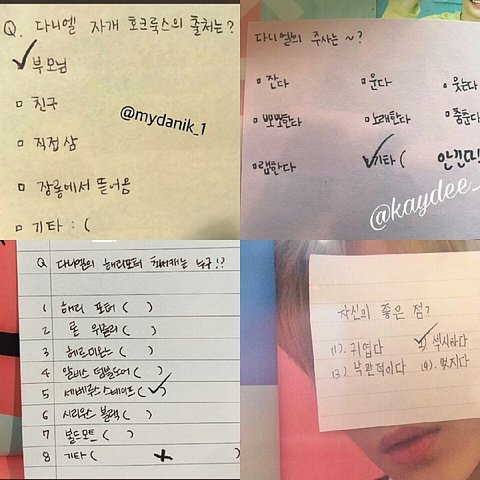 Q. 다니엘 자개 호크룩스의 출처는?
✓ 부모님
□ 친구
□ 직접 삼
□ 장롱에서 뜯어옴
□ 기타 : (
@mydanik_1
다니엘의 주사는 ~?
□ 잔다 □ 운다 □ 웃는다
□ 뽀뽀한다 □ 노래한다 □ 춤춘다
□ 랩한다 ✓ 기타 (
@kaydee_
Q 다니엘의 해리포터 최애캐는 누구!?
1 해리 포터 ( )
2 론 위즐리 ( )
3 헤르미온느 ( )
4 알버스 덤블도어 ( )
5 세베루스 스네이프 ( ✓ )
6 시리우스 블랙 ( )
7 볼드모트 ( )
8 기타 ( )
자신의 좋은 점?
(1). 귀엽다 ✓ 2). 섹시하다
(3). 낙관적이다 (4). 멋지다